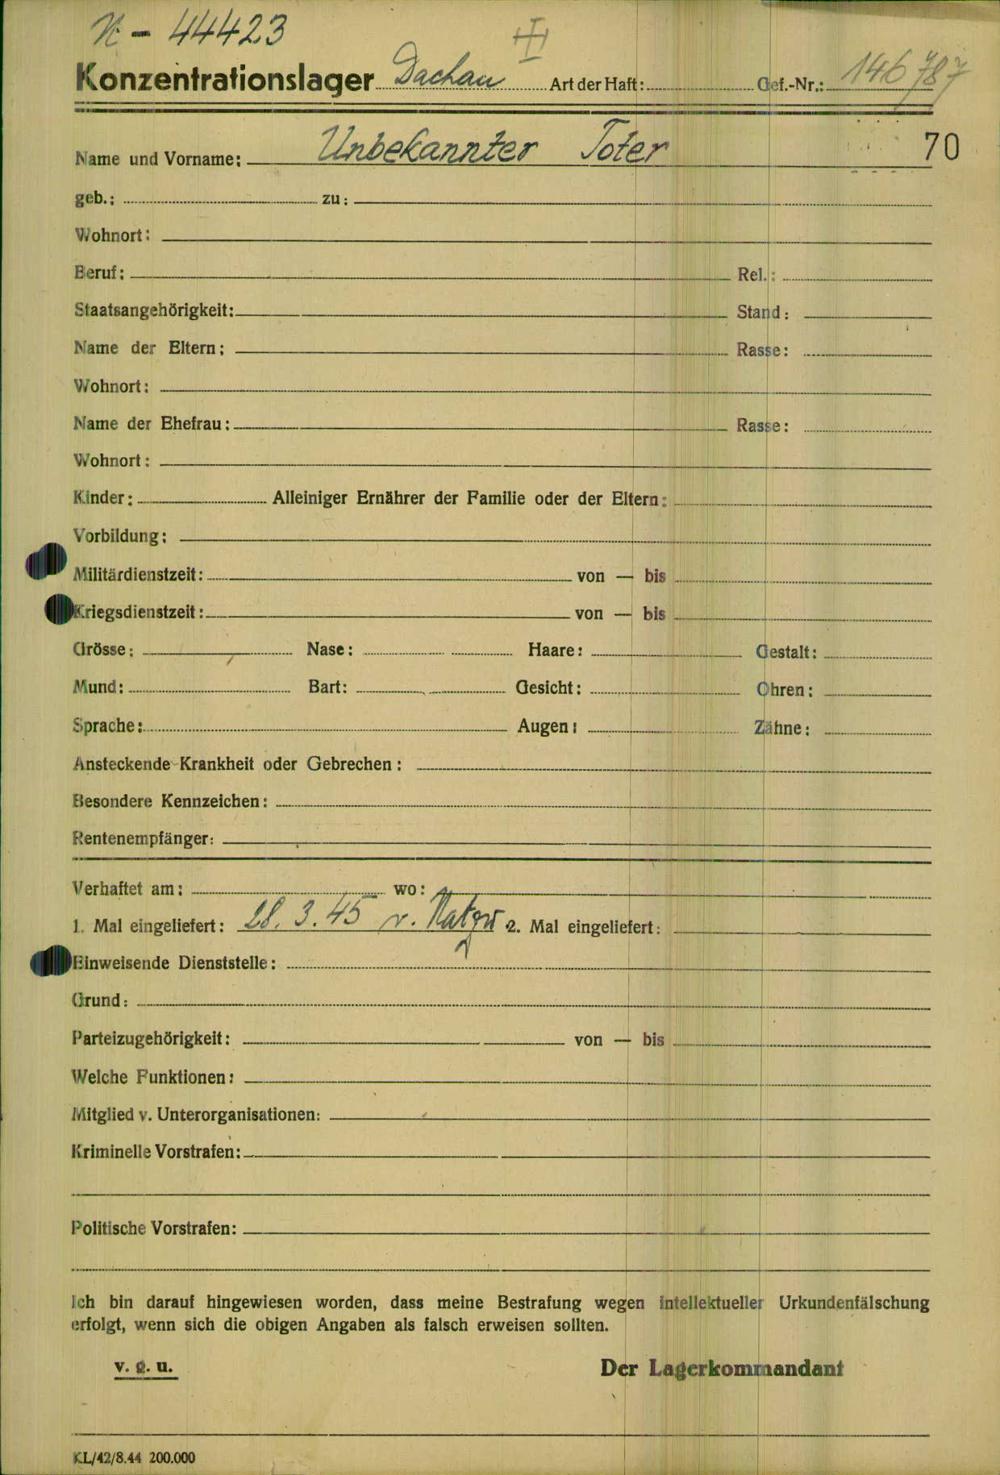 N - 44423
Konzentrationslager Dachau Art der Haft: Gef.-Nr.: 146787
Name und Vorname: Unbekannter Toter 70
geb.: zu:
Wohnort:
Beruf: Rel.:
Staatsangehörigkeit: Stand:
Name der Eltern: Rasse:
Wohnort:
Name der Ehefrau: Rasse:
Wohnort:
Kinder: Alleiniger Ernährer der Familie oder der Eltern:
Vorbildung:
Militärdienstzeit: von — bis
Kriegsdienstzeit: von — bis
Grösse: Nase: Haare: Gestalt:
Mund: Bart: Gesicht: Ohren:
Sprache: Augen: Zähne:
Ansteckende Krankheit oder Gebrechen:
Besondere Kennzeichen:
Rentenempfänger:
Verhaftet am: wo:
1. Mal eingeliefert: 28. 3. 45 v. Natzw 2. Mal eingeliefert:
Einweisende Dienststelle:
Grund:
Parteizugehörigkeit: von — bis
Welche Funktionen:
Mitglied v. Unterorganisationen:
Kriminelle Vorstrafen:
Politische Vorstrafen:
Ich bin darauf hingewiesen worden, dass meine Bestrafung wegen intellektueller Urkundenfälschung
erfolgt, wenn sich die obigen Angaben als falsch erweisen sollten.
v. g. u. Der Lagerkommandant
KL/42/8.44 200.000